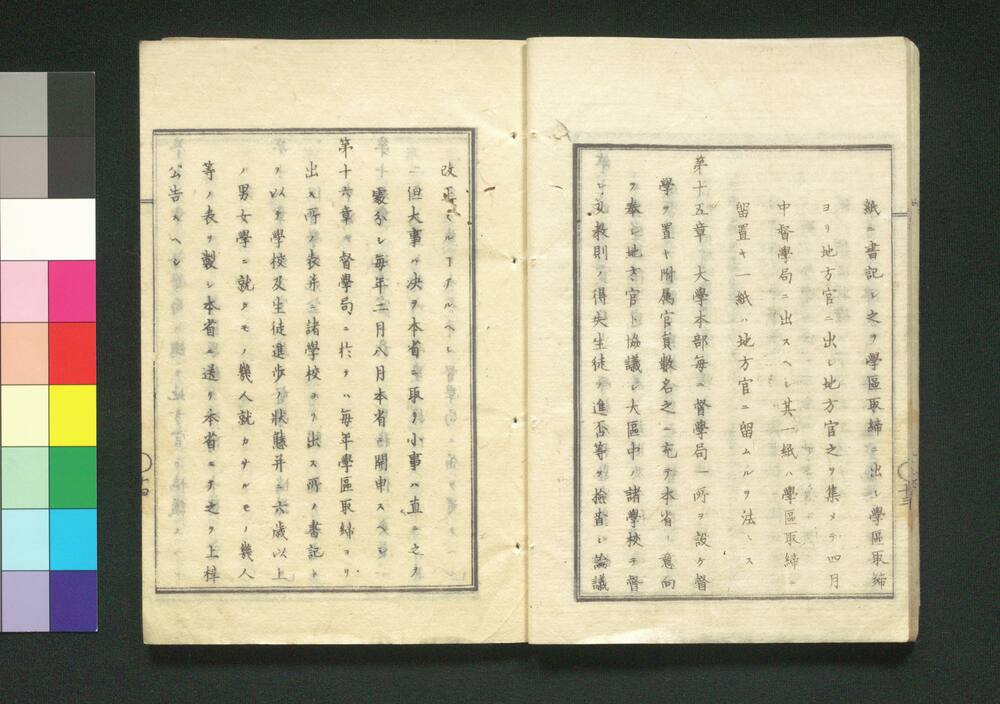 紙ニ書記シ之ヲ學區取締ニ出シ學區取締
ヨリ地方官ニ出シ地方官之ヲ集メテ四月
中督學局ニ出スヘシ其一紙ハ學區取締ニ
留置キ一紙ハ地方官ニ留ムルヲ法トス
第十五章 大學本部毎ニ督學局一所ヲ設ケ督
學ヲ置キ附属官員數名之ニ充テ本省ノ意向
ヲ奉シ地方官ト協議シ大區中ノ諸學校ヲ督
シ及教則ノ得失生徒ノ進否等ヲ檢査シ論議
改正スルコアルヘシ
但大事ハ决ヲ本省ニ取リ小事ハ直ニ之ヲ
處分シ毎年二月八月本省ニ開申スヘシ
第十六章 督學局ニ於テハ毎年學區取締ヨリ
出ス所ノ表并ニ諸學校ヨリ出ス所ノ書記ト
ヲ以テ學校及生徒進歩ノ状態并ニ六歳以上
ノ男女學ニ就クモノ幾人就カサルモノ幾人
等ノ表ヲ製シ本省ニ送リ本省ニテ之ヲ上梓
公告スヘシ